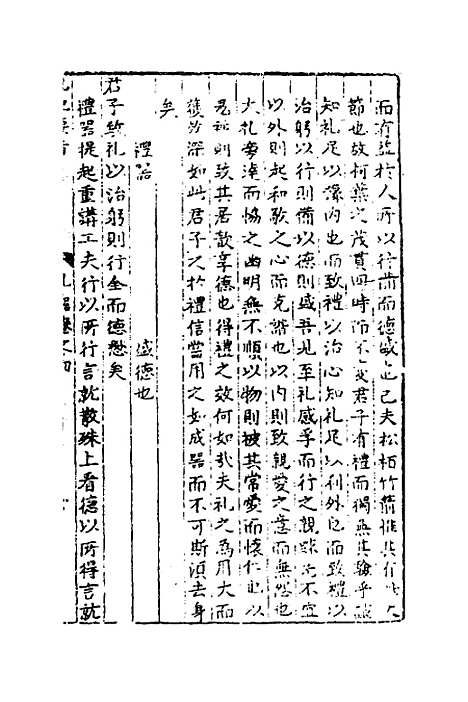 而有益於人所以行備而德盛也已夫松栢竹箭惟其有
節也故柯葉之茂貫四時而不變君子有禮而獨無其驗乎誠
知礼足以深內也而致禮以治心知礼足以利外也而致禮以
治躬以行則備以德則盛吾見至礼感孚而行之親踈無不宜
以外則起和敬之心而克諧也以內則致親愛之意而無怨也
大礼旁達而恊之幽明無不順以物則被其常愛而懷仁也以
鬼神則致其居歆享德也得禮之效何如哉夫礼之為用大而
獲效深如此君子之於禮信當用之如成器而不可斯須去身
矣
禮器 盛德也
君子致礼以治躬則行全而德懋矣
禮器提起重講工夫行以所行言就散殊上看德以所得言就